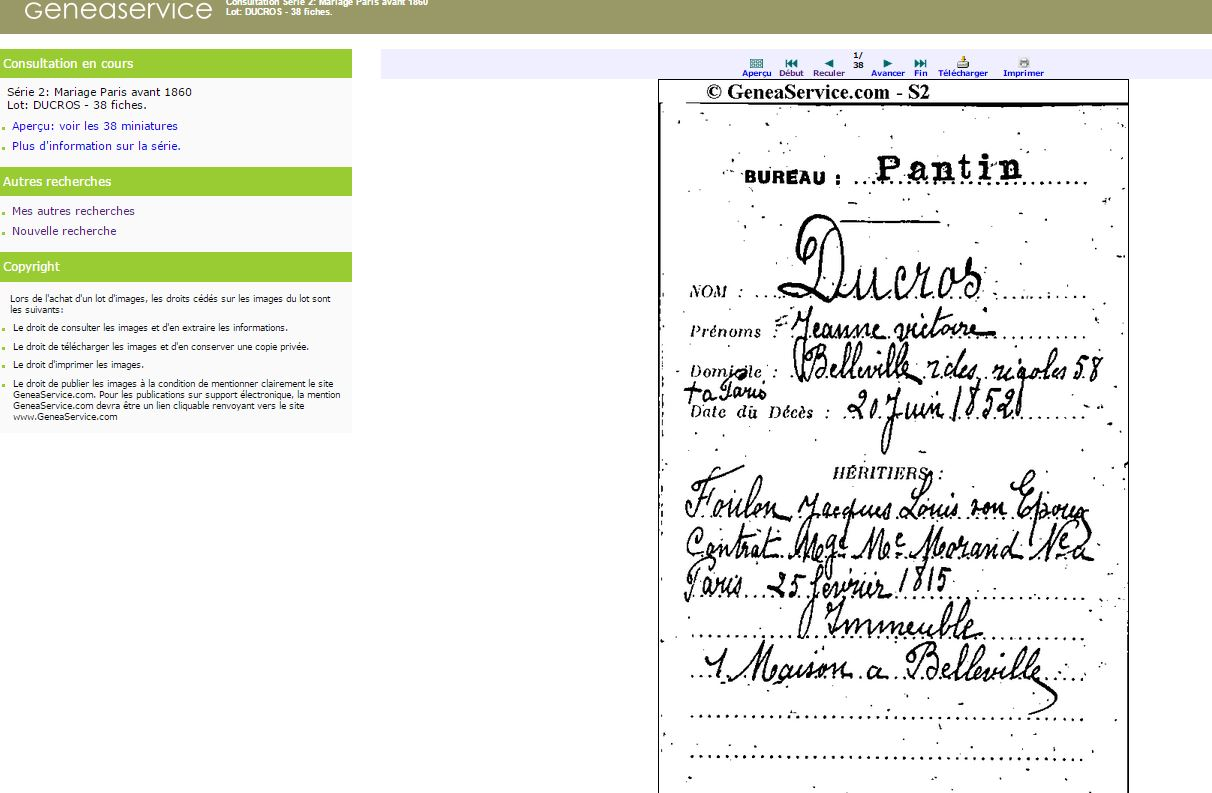 Geneaservice
Consultation Série 2: Mariage Paris avant 1860
Lot: DUCROS - 38 fiches.
Consultation en cours
Série 2: Mariage Paris avant 1860
Lot: DUCROS - 38 fiches.
Aperçu: voir les 38 miniatures
Plus d'information sur la série.
Autres recherches
Mes autres recherches
Nouvelle recherche
Copyright
Lors de l'achat d'un lot d'images, les droits cédés sur les images du lot sont
les suivants:
Le droit de consulter les images et d'en extraire les informations.
Le droit de télécharger les images et d'en conserver une copie privée.
Le droit d'imprimer les images.
Le droit de publier les images à la condition de mentionner clairement le site
GeneaService.com. Pour les publications sur support électronique, la mention
GeneaService.com devra être un lien cliquable renvoyant vers le site
www.GeneaService.com
1/
38
Aperçu Début Reculer Avancer Fin Télécharger Imprimer
© GeneaService.com - S2
BUREAU : Pantin
NOM : Ducros
Prénoms : Jeanne victoire
Domicile : Belleville r des rigoles 58
+ a Paris
Date du Décès : 20 Juin 1852
HÉRITIERS :
Foulon Jacques Louis son Epoux
Contrat Mge Me Morand Nre a
Paris 25 fevrier 1815
Immeuble
1 Maison a Belleville